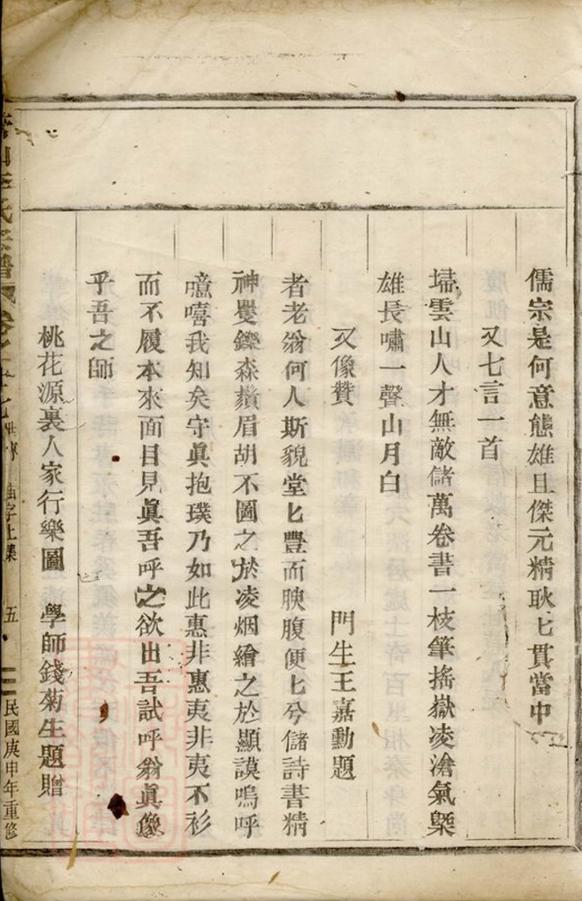 儒宗是何意態雄且傑元精耿匕貫當中
又七言一首
埽雲山人才無敵儲萬卷書一枝筆搖嶽凌滄氣槩
雄長嘯一聲山月白
又像贊　門生王嘉勳題
耆老翁何人斯貌堂匕豐而腴腹便匕兮儲詩書精
神矍鑠森鬚眉胡不圖之於凌烟繪之於顯謨嗚呼
噫嘻我知矣守眞抱璞乃如此惠非惠夷非夷不衫
而不履本來面目見眞吾呼之欲出吾試呼翁眞像
乎吾之師
桃花源裏人家行樂圖　學師錢菊生題贈
氏宗譜 五 民國庚申年重修